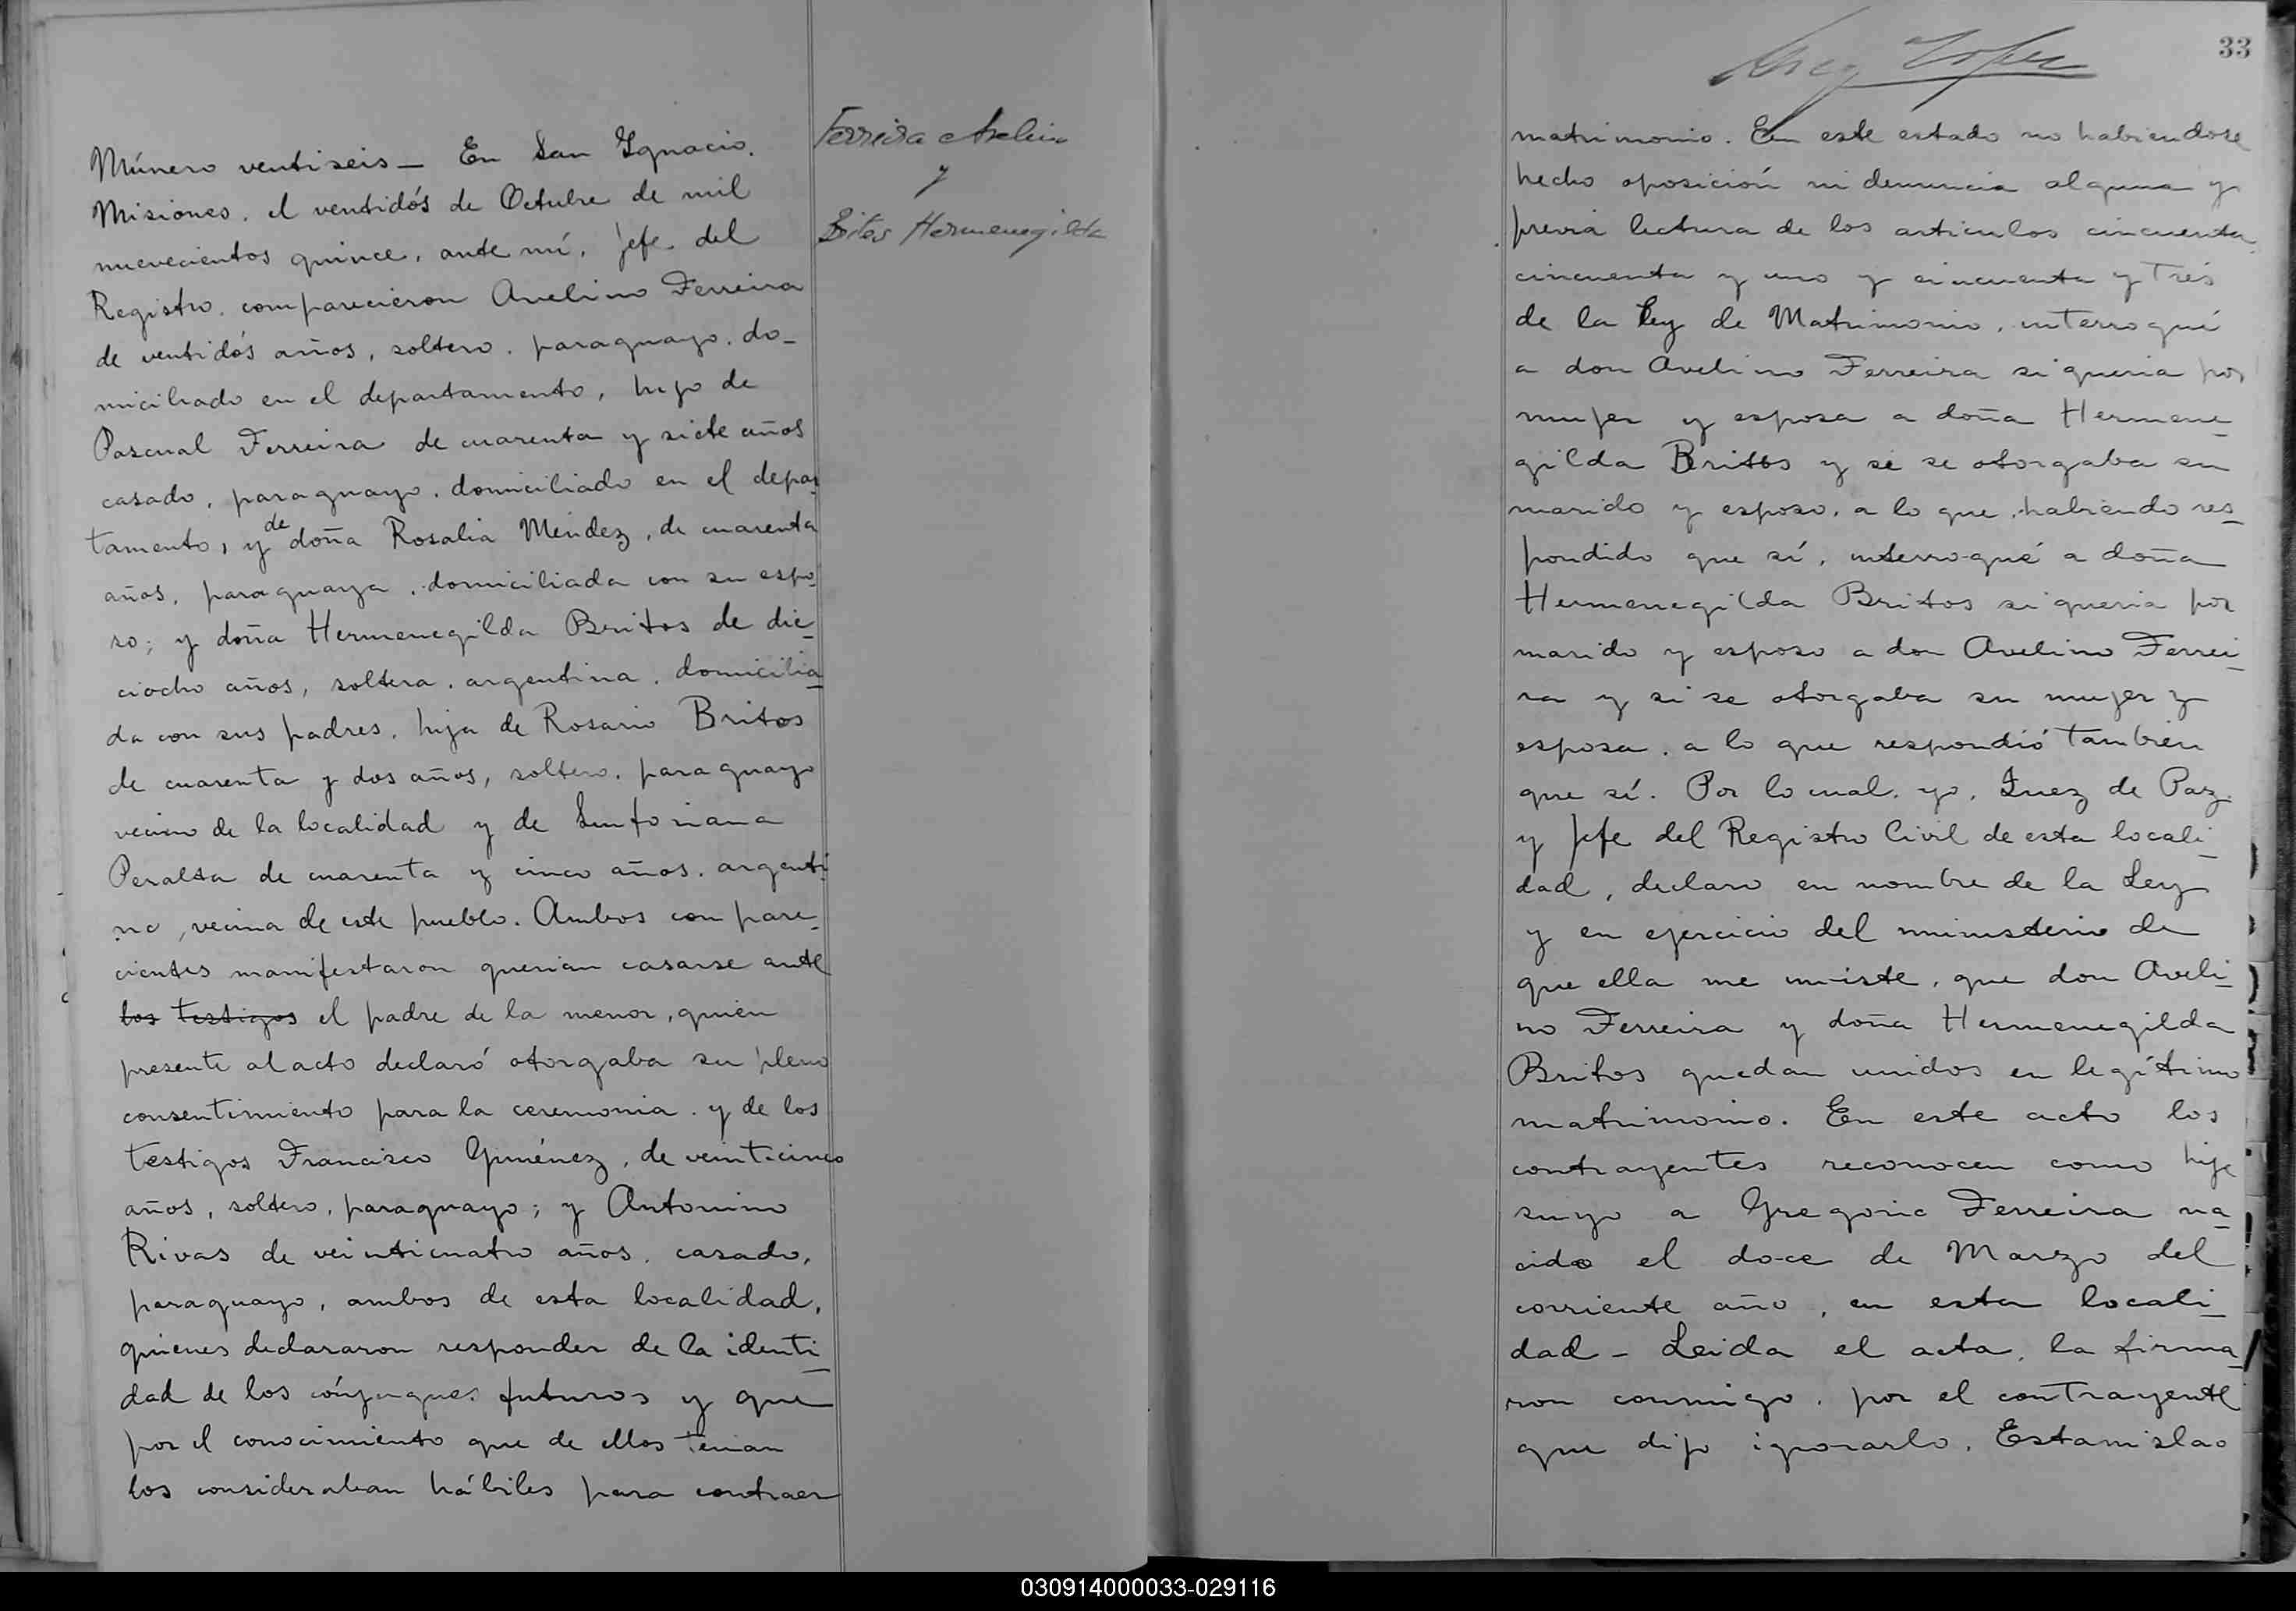 Múnero ventiseis — En San Ygnacio.
Misiones. el ventidós de Octubre de mil
nuevecientos quince, ante mí, Jefe del
Registro. comparecieron Avelino Ferreira
de ventidós años, soltero. paraguayo. do_
miciliado en el departamento, hijo de
Pascual Ferreira de cuarenta y siete años
casado, paraguayo. domiciliado en el depar_
tamento, y de doña Rosalia Méndez, de cuarenta
años, paraguaya. domiciliada con su espo_
so; y doña Hermenegilda Britos de die_
ciocho años, soltera. argentina. domicilia_
da con sus padres. hija de Rosario Britos
de cuarenta y dos años, soltero. paraguayo
vecino de la localidad y de Sinforiana
Peralta de cuarenta y cinco años. argenti_
na, vecina de este pueblo. Ambos compare_
cientes manifestaron querian casarse ante
los testigos el padre de la menor, quien
presente al acto declaró otorgaba su pleno
consentimiento para la ceremonia. y de los
testigos Francisco Giménez, de veinticinco
años, soltero, paraguayo; y Antonino
Rivas de veinticuatro años. casado,
paraguayo, ambos de esta localidad,
quienes declararon responder de la identi_
dad de los cónyugues futuros y que
por el conocimiento que de ellos tenian
los consideraban hábiles para contraer
Ferreira Avelino
y
Hermenegilda
33
matrimonio. En este estado no habiendose
hecho oposición ni denuncia alguna y
previa lectura de los articulos cincuenta
cincuenta y uno y cincuenta y tres
de la Ley de Matrimonio, interrogué
a don Avelino Ferreira si queria por
mujer y esposa a doña Hermene_
gilda Britos y si se otorgaba su
marido y esposo. a lo que habiendo res_
pondido que sí, interrogué a doña
Hermenegilda Britos si queria por
marido y esposo a don Avelino Ferrei_
ra y si se otorgaba su mujer y
esposa. a lo que respondió también
que sí. Por lo cual. yo, Juez de Paz
y Jefe del Registro Civil de esta locali_
dad, declaro en nombre de la Ley
y en ejercicio del ministerio de
que ella me inviste, que don Aveli_
no Ferreira y doña Hermenegilda
Britos quedan unidos en legítimo
matrimonio. En este acto los
contrayentes reconocen como
suyo a Ferreira na_
cido el doce de Marzo del
corriente año, en esta locali_
dad - Leida el acta, la firma_
ron conmigo. por el contrayente
que dijo ignorarlo. Estanislao
030914000033-029116